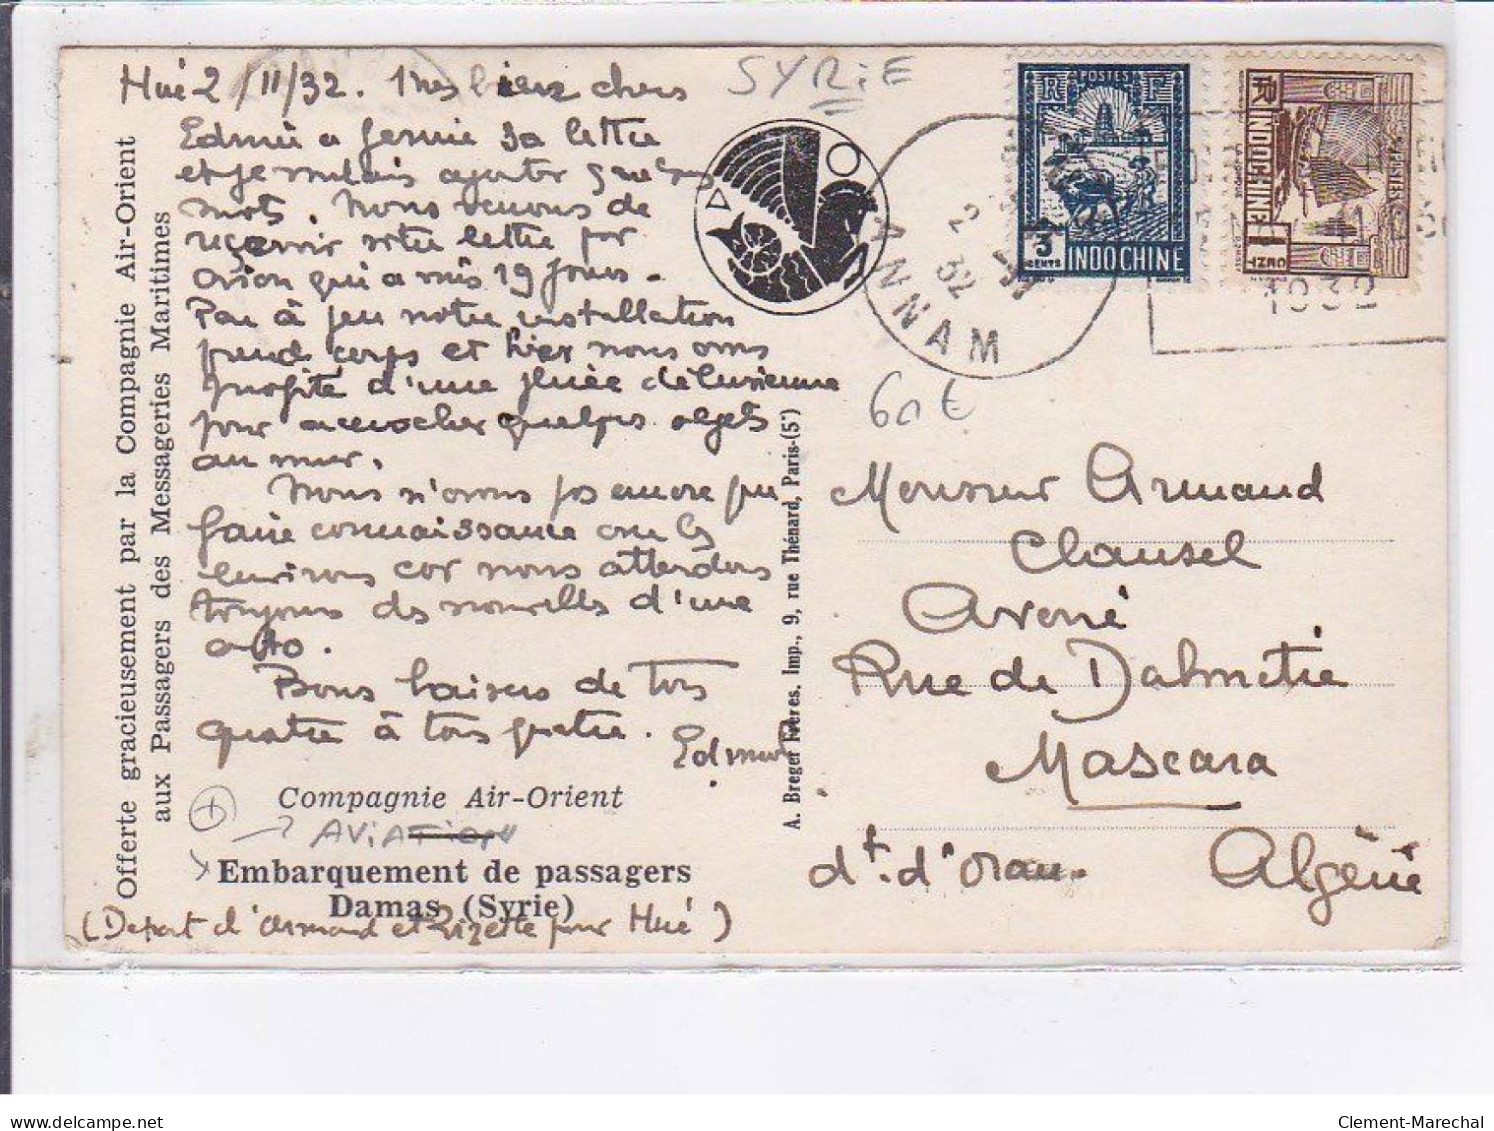 Hué 2/11/32. Mes biens chers
Edmée a fermé sa lettre
et je voulais ajouter quelques
mots. Nous venons de
recevoir votre lettre par
avion qui a mis 19 jours.
Peu à peu notre installation
prend corps et hier nous avons
profité d'une pluie
pour accrocher quelques objets
au mur.
Nous n'avons pas encore pu
faire connaissance avec les
environs car nous attendons
toujours des nouvelles d'une
auto.
Bons baisers de tous
quatre à tous quatre.
Edmond
SYRIE
Offerte gracieusement par la Compagnie Air-Orient
aux Passagers des Messageries Maritimes
Compagnie Air-Orient
AVIATION
Embarquement de passagers
Damas (Syrie)
(Depart d'Armand et Lizette pour Hué)
A. Breger Frères, Imp., 9, rue Thénard, Paris-(5e)
POSTES
R F
3
CENTS
INDOCHINE
RF
INDOCHINE
POSTES
1
2
32
ANNAM
1932
60 €
Monsieur Armand
Clausel
Avoué
Rue de Dalmatie
Mascara
dt. d'Oran.
Algérie
Clement-Marechal